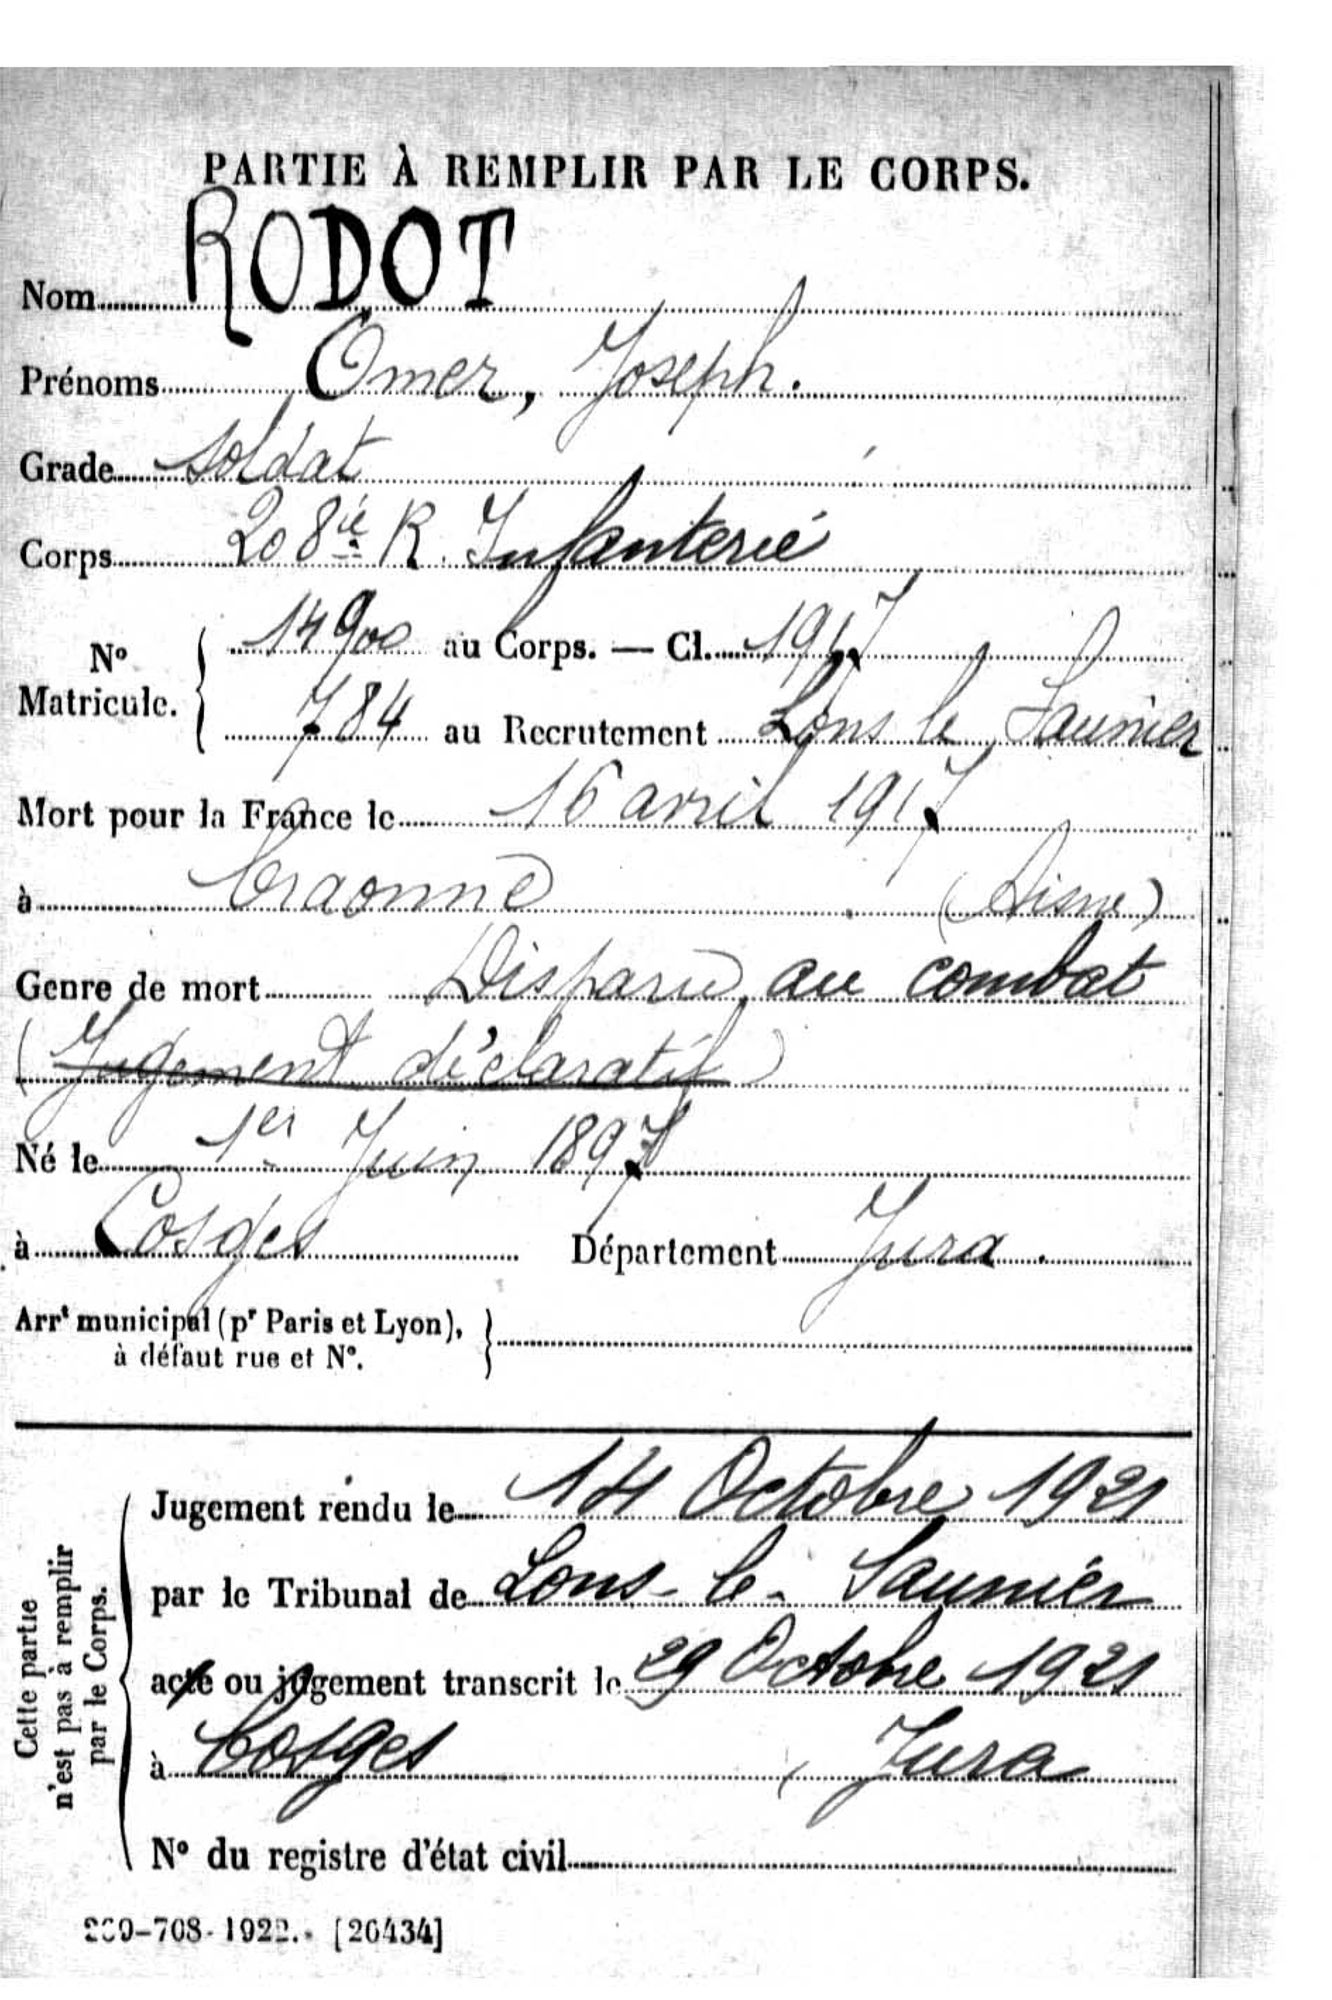 PARTIE À REMPLIR PAR LE CORPS.
Nom RODOT
Prénoms Omer, Joseph.
Grade soldat
Corps 208ie R. Infanterie
No Matricule. { 14900 au Corps. — Cl. 1917
784 au Recrutement Lons le Saunier
Mort pour la France le 16 avril 1917
à Craonne (Aisne)
Genre de mort Disparu au combat
(Jugement déclaratif)
Né le 1er Juin 1897
à Cosges Département Jura.
Arrt municipal (pr Paris et Lyon), }
à défaut rue et No.
Cette partie
n'est pas à remplir
par le Corps.
Jugement rendu le 14 Octobre 1921
par le Tribunal de Lons-le-Saunier
acte ou jugement transcrit le 29 Octobre 1921
à Cosges ( Jura
No du registre d'état civil
-708-1922. [26434]